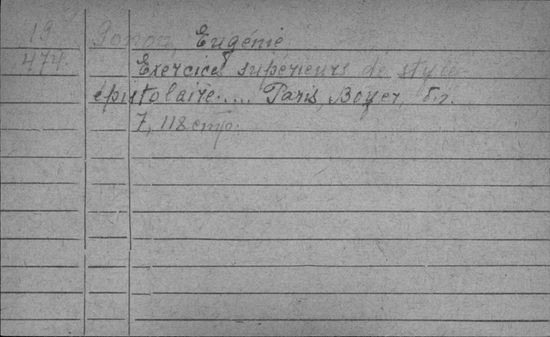 19 Gonon, Eugénie
474. Exercices supérieurs de style
épistolaire.... Paris, Boyer, б.г.
7, 118 стр.